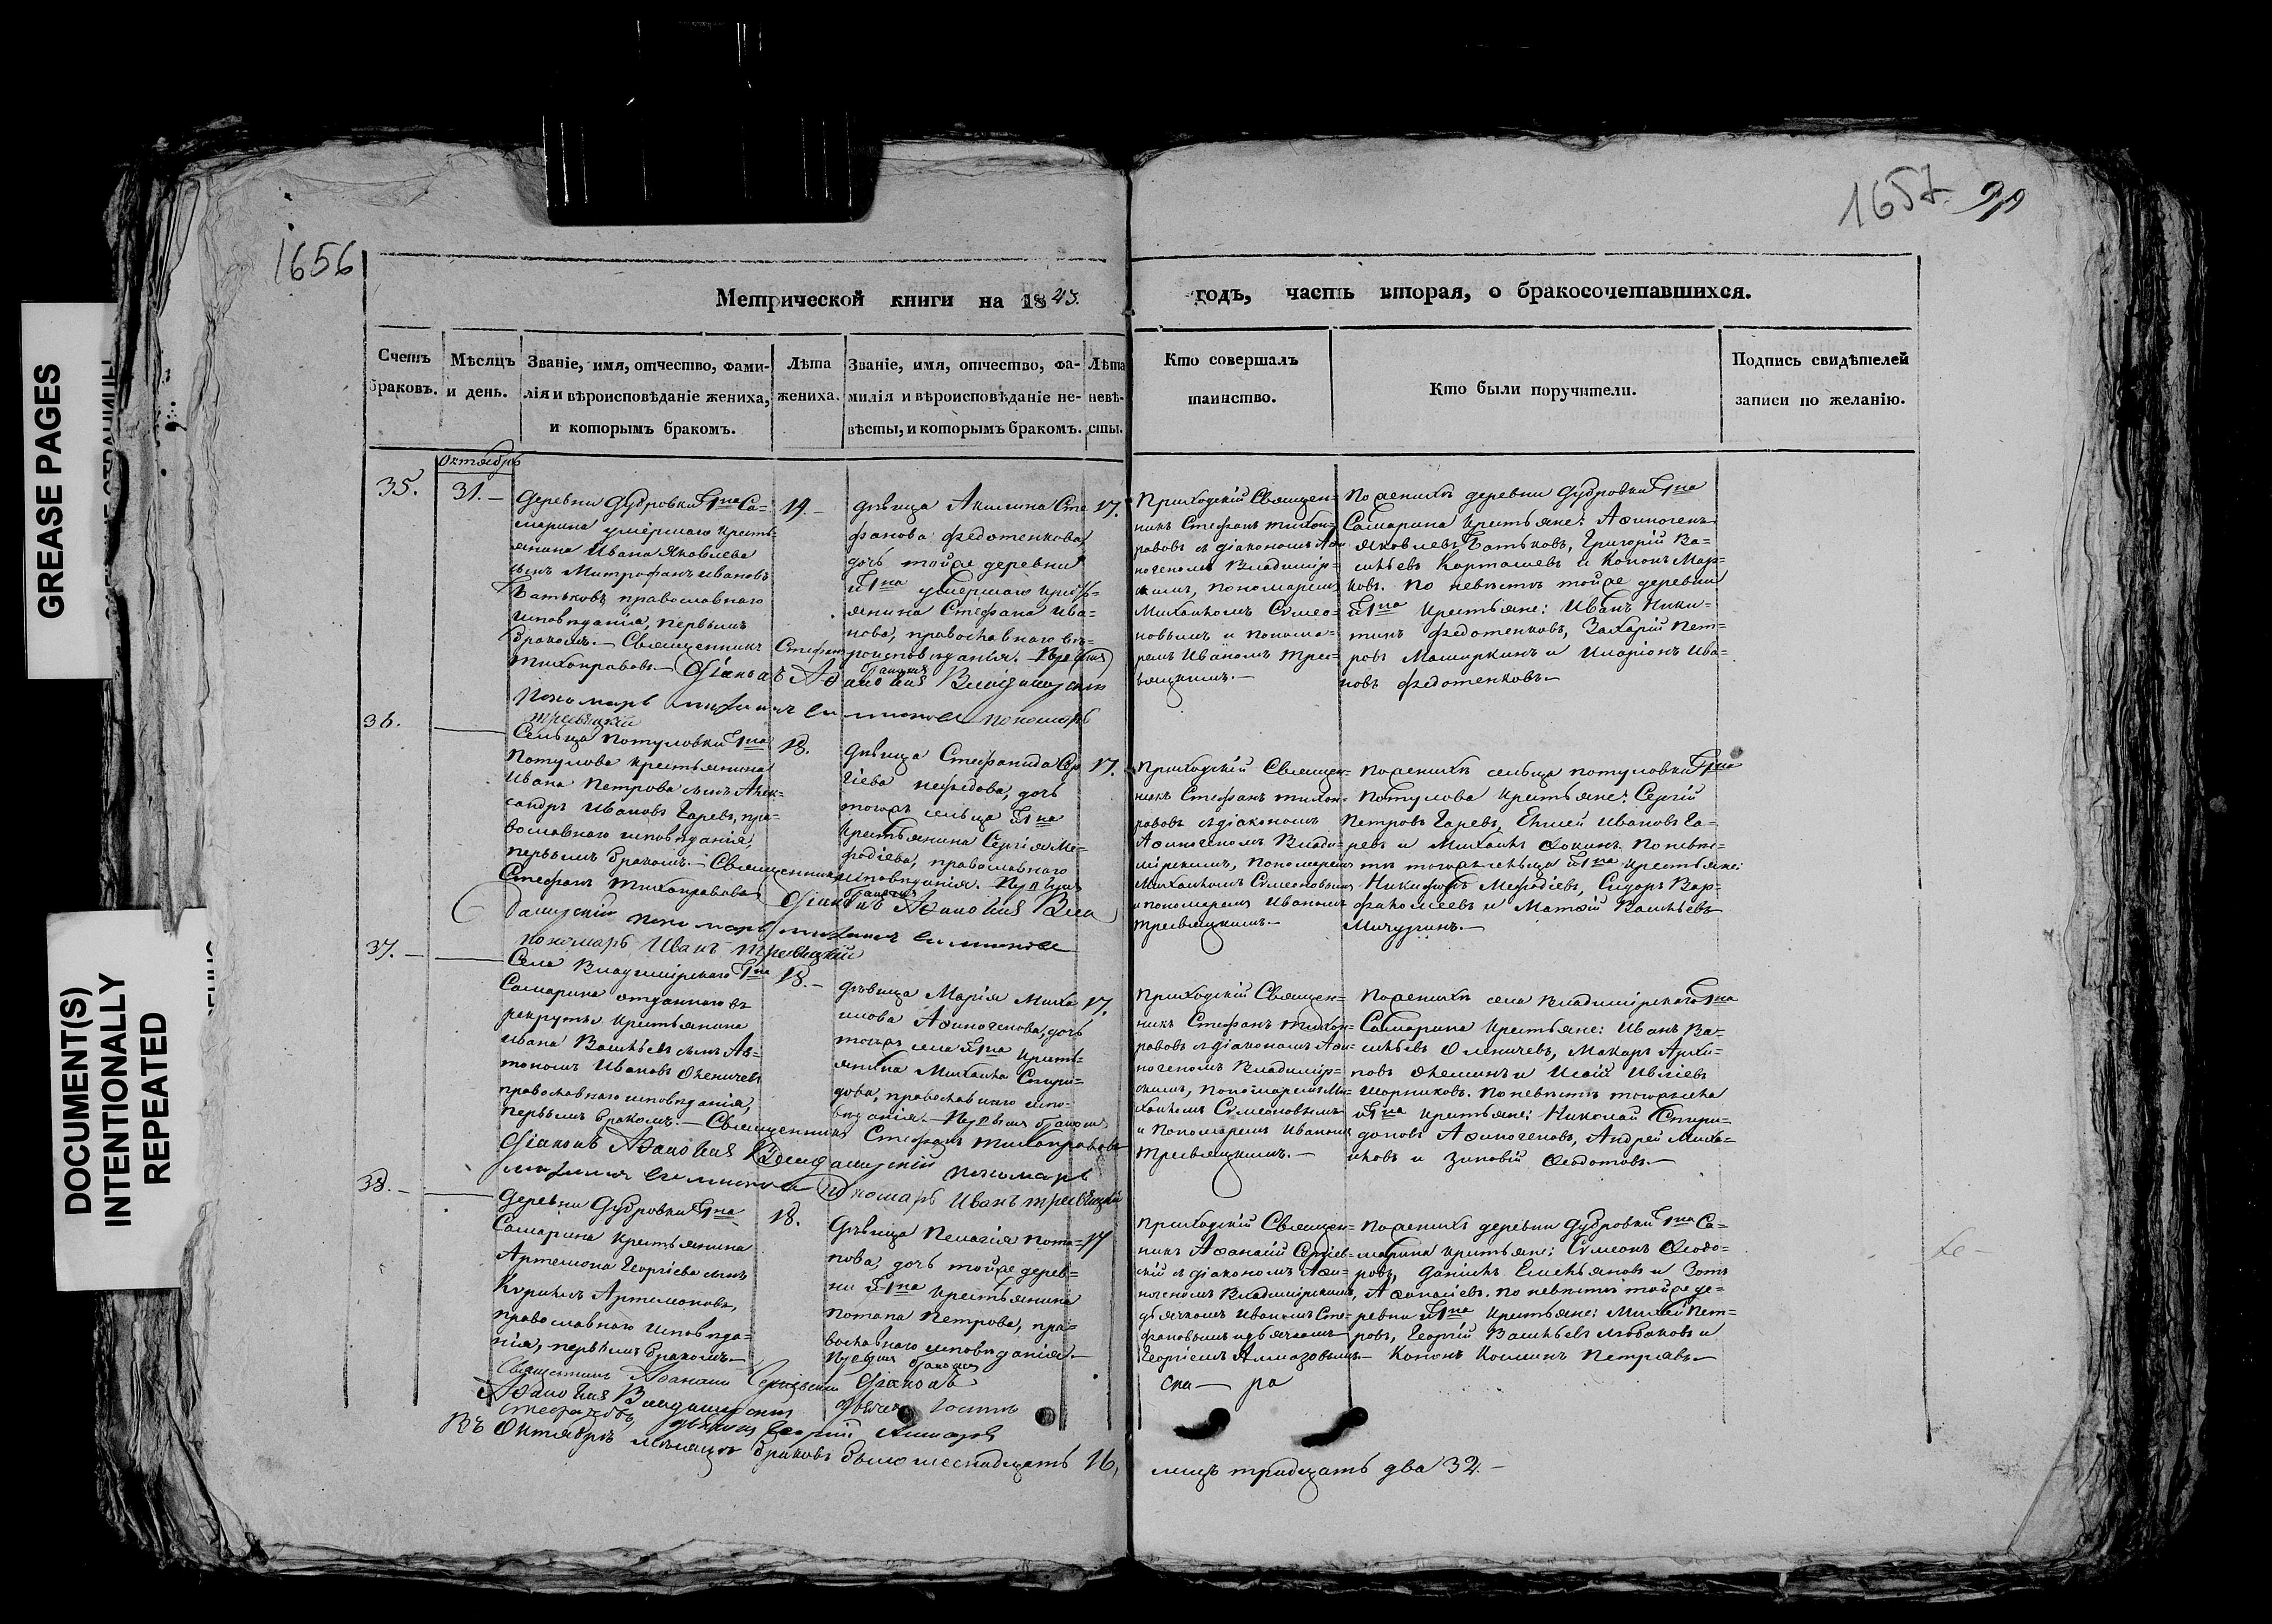 GREASE PAGES
DOCUMENT(S)
INTENTIONALLY
REPEATED
1656
1657
Метрической книги на 1843.
годъ, часть вторая, о бракосочетавшихся.
Счетъ
браковъ.
Мѣсяцъ
и день.
Званіе, имя, отчество, фами-
лія и вѣроисповѣданіе жениха,
и которымъ бракомъ.
Лѣта
жениха.
Званіе, имя, отчество, фа-
милія и вѣроисповѣданіе не-
вѣсты, и которымъ бракомъ.
Лѣта
невѣ-
сты.
Кто совершалъ
таинство.
Кто были поручители.
Подпись свидѣтелей
записи по желанію.
Октябрь
35.
31.
Деревни Дубровки Гна Са-
марина умершаго кресть-
янина Ивана Яковлева
сынъ Митрофанъ Ивановъ
Батьковъ православнаго
исповѣданія, первымъ
бракомъ. Священникъ Стефанъ
Тихонравовъ. Діаконъ
19.
дѣвица Акилина Сте
фанова Федотенкова
дочь тойже деревни
Гна умершаго кресть-
янина Стефана Ива-
нова, православнаго вѣ-
роисповѣданія. Первымъ
бракомъ
17.
Приходскій Священ-
никъ Стефанъ Тихон-
равовъ съ діакономъ Аѳи
ногеномъ Владимір-
скимъ, пономаремъ
Михаиломъ Сѵмео-
новымъ и понома-
ремъ Иваномъ Трес-
вяцкимъ.
По женихѣ деревни Дубровки Гна
Самарина крестьяне: Аѳиногенъ
Яковлевъ Батьковъ, Григорій Ва-
сильевъ Карташевъ и Кононъ Мар-
ковъ. По невѣстѣ тойже деревни
Гна крестьяне: Иванъ Ники-
тинъ Федотенковъ, Захарій Пет-
ровъ Машуркинъ и Иларіонъ Ива-
новъ Федотенковъ.
36.
Сельца Потуловки Гна
Потулова крестьянина
Ивана Петрова сынъ Алек-
сандръ Ивановъ Царевъ, пра-
вославнаго исповѣданія,
первымъ бракомъ. Священникъ
Стефанъ Тихонравовъ Діаконъ
18.
дѣвица Стефанида Сер
гіева Нефедова, дочь
тогожъ сельца Гна
крестьянина Сергія Ме-
фодіева, православнаго
исповѣданія. Первымъ
бракомъ
17.
Приходскій Священ-
никъ Стефанъ Тихон-
равовъ съ діакономъ
Аѳиногеномъ Влади-
мірскимъ, пономаремъ
Михаиломъ Сѵмеоновымъ
и пономаремъ Иваномъ
Тресвяцкимъ.
По женихѣ сельца Потуловки Гна
Потулова крестьяне: Сергій
Петровъ Царевъ, Евсей Ивановъ Ца-
ревъ и Михаилъ Ѳокинъ. По невѣс-
тѣ тогожъ сельца Гна крестьяне:
Никифоръ Мефодіевъ, Сидоръ Вар-
фоломеевъ и Матѳій Васильевъ
Мичуринъ.
пономарь Иванъ Тресвяцкій
37.
Села Владимірскаго Гна
Самарина отданнаго въ
рекруты крестьянина
Ивана Васильева сынъ Ав-
тономъ Ивановъ Оленичевъ
православнаго исповѣданія,
первымъ бракомъ. Священникъ Стефанъ Тихонравовъ
18.
дѣвица Марія Миха
илова Аѳиногенова, дочь
тогожъ села Гна кресть-
янина Михаила Спири-
дова, православнаго испо-
вѣданія. Первымъ бракомъ
17.
Приходскій Священ-
никъ Стефанъ Тихон-
равовъ съ діакономъ Аѳи-
ногеномъ Владимір-
скимъ, пономаремъ Ми-
хаиломъ Сѵмеоновымъ
и пономаремъ Иваномъ
Тресвяцкимъ.
По женихѣ села Владимірскаго Гна
Самарина крестьяне: Иванъ Ва-
сильевъ Оленичевъ, Макаръ Архи-
повъ и Исай Ивлевъ
Шорниковъ. По невѣстѣ тогожъ села
Гна крестьяне: Николай Спири-
доновъ Аѳиногеновъ, Андрей Миха-
иловъ и Зиновій Ѳеодотовъ.
Пономарь Иванъ Тресвяцкій
38.
Деревни Дубровки Гна
Самарина крестьянина
Артемона Георгіева сынъ
Кирилъ Артемоновъ,
православнаго исповѣда-
нія, первымъ бракомъ.
18.
дѣвица Пелагія Пота-
пова, дочь тойже дерев-
ни Гна крестьянина
Потапа Петрова, пра-
вославнаго исповѣданія.
Первымъ бракомъ
17
Приходскій Священ-
никъ Аѳанасій Сергіев-
скій съ діакономъ Аѳи-
ногеномъ Владимірскимъ,
дьячкомъ Иваномъ Сте-
фановымъ и дьячкомъ
Георгіемъ Алмазовымъ.
По женихѣ деревни Дубровки Гна Са-
марина крестьяне: Сѵмеонъ Ѳеодо-
ровъ, Даніилъ Емельяновъ и Зотъ
Аѳанасіевъ. По невѣстѣ тойже де-
ревни Гна крестьяне: Михей Пет-
ровъ, Георгій Васильевъ и
Кононъ Косминъ Петряевъ.
Священникъ Аѳанасій Сергіевскій Діаконъ
Въ Октябрѣ мѣсяцѣ браковъ было шеснадцать 16,
лицъ тридцать два 32.